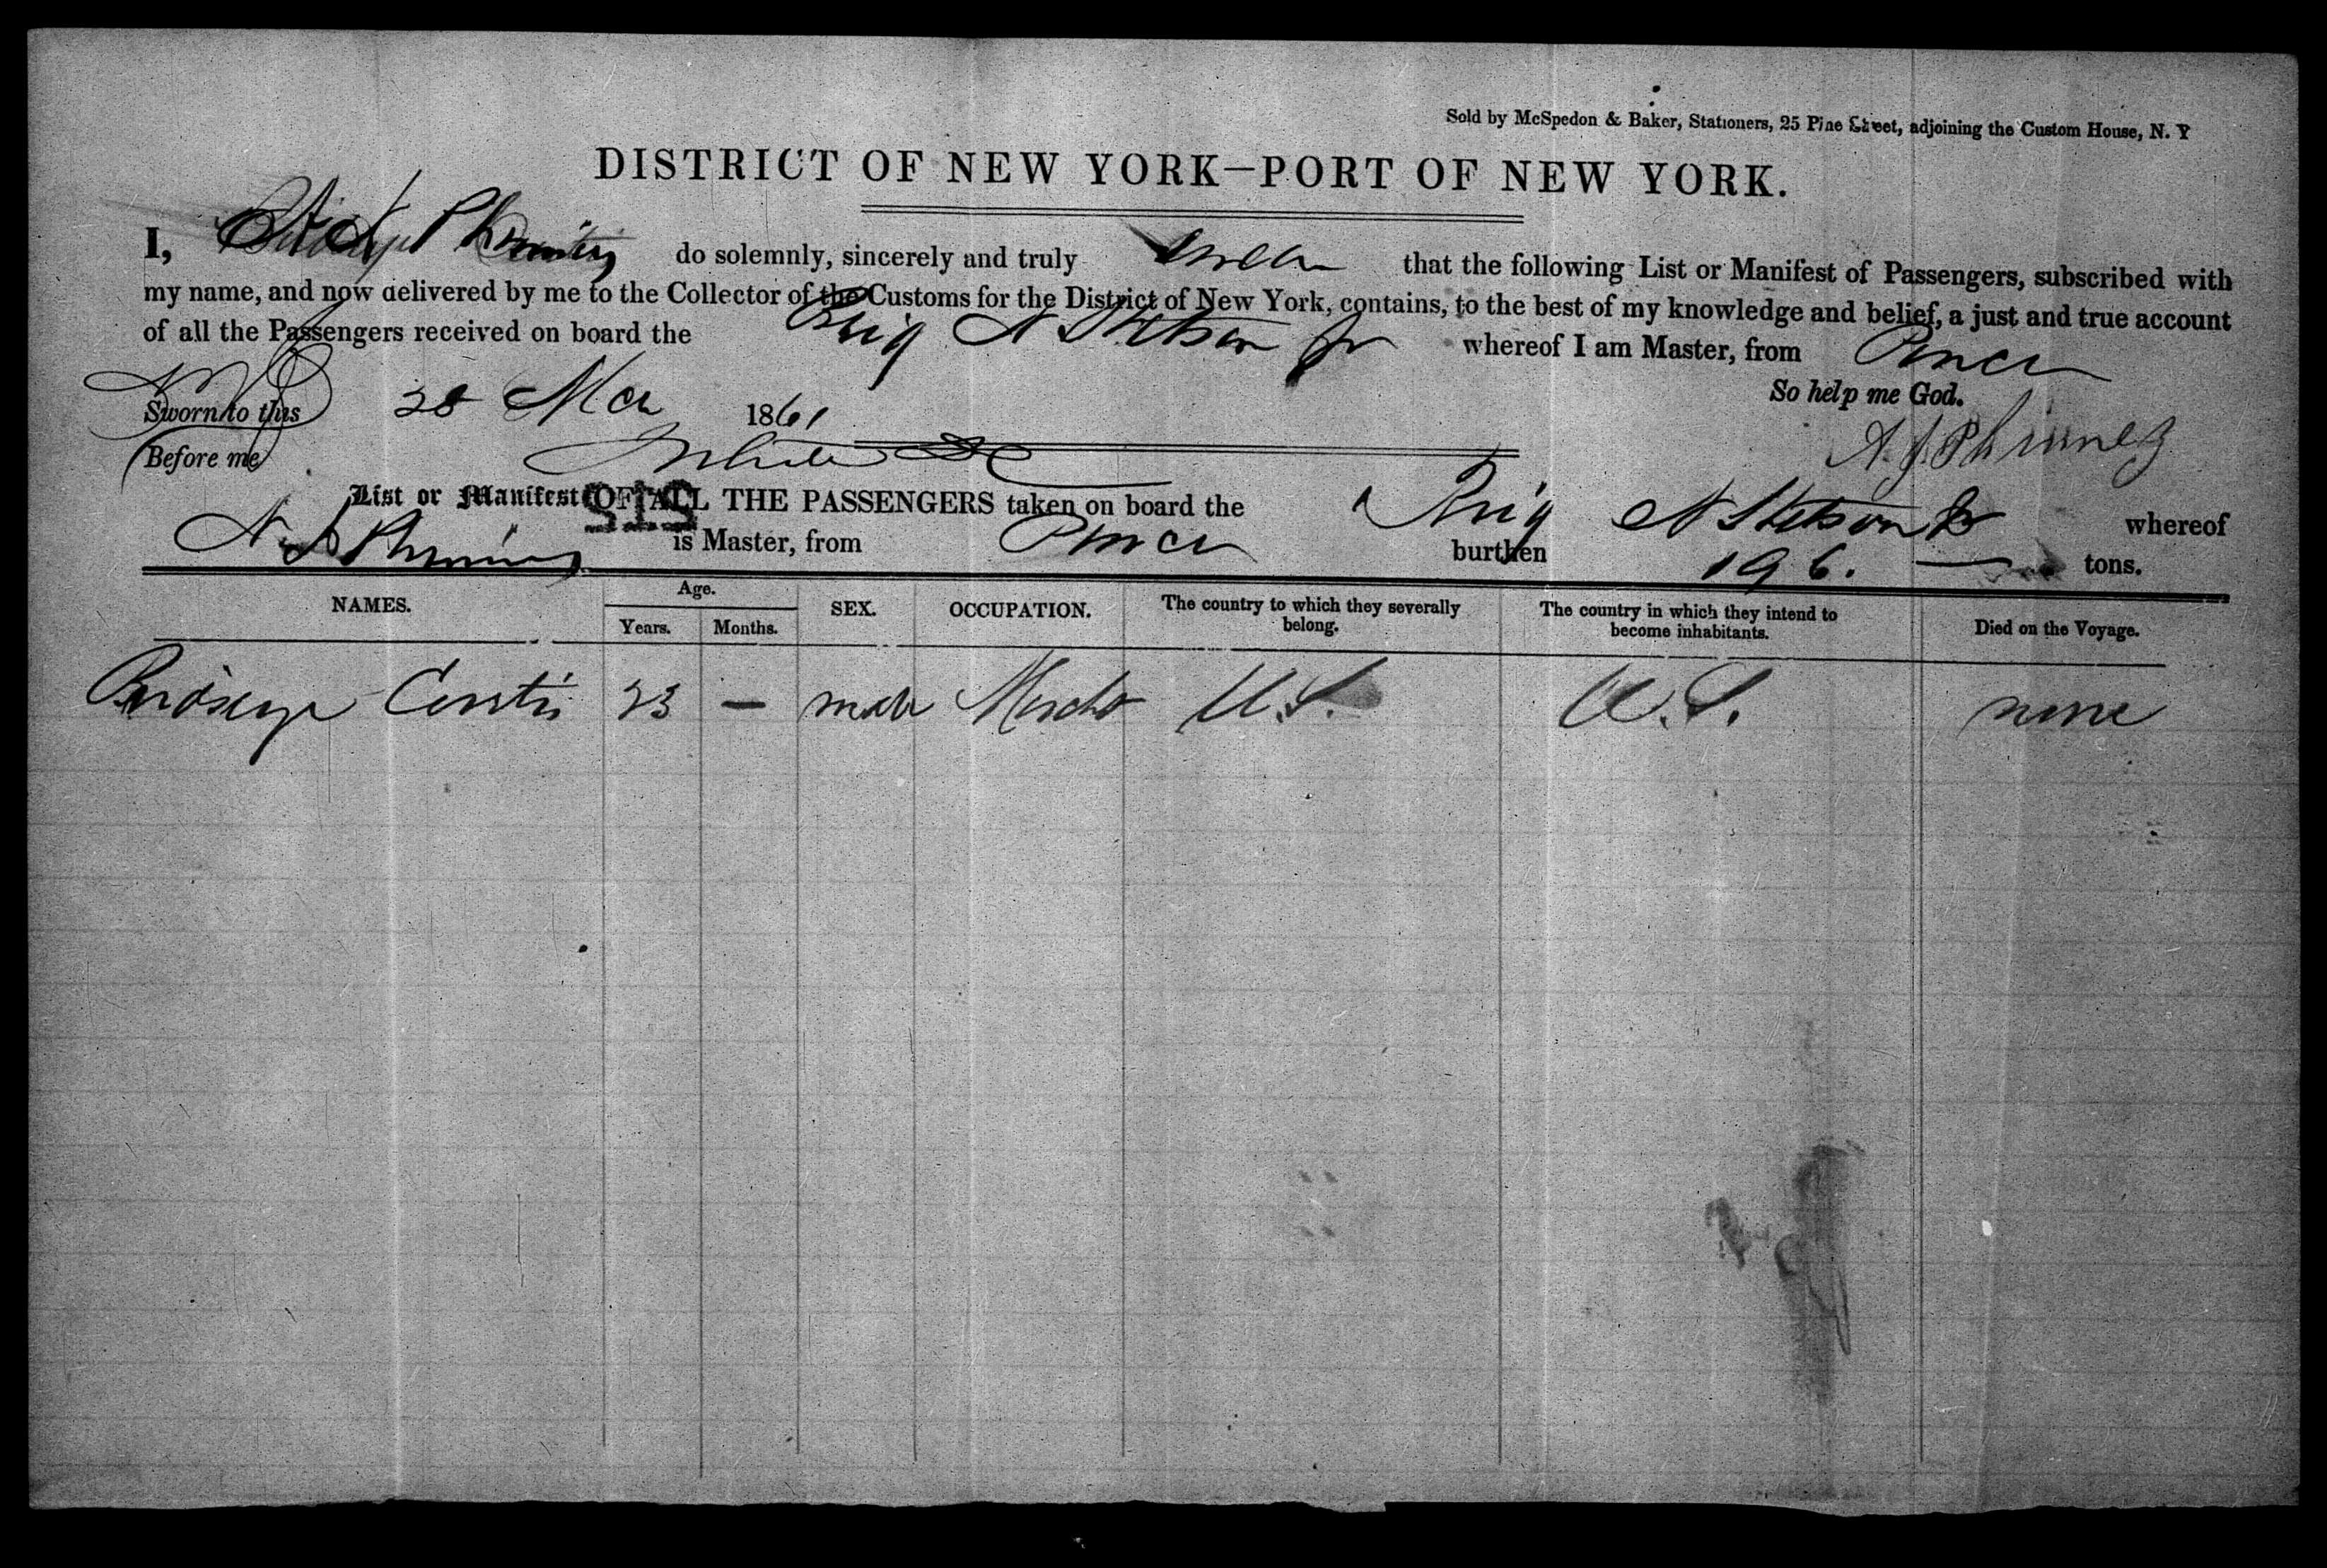 Sold by McSpedon & Baker, Stationers, 25 Pine Street, adjoining the Custom House, N. Y
DISTRICT OF NEW YORK—PORT OF NEW YORK.
I, Phinney do solemnly, sincerely and truly swear that the following List or Manifest of Passengers, subscribed with
my name, and now delivered by me to the Collector of the Customs for the District of New York, contains, to the best of my knowledge and belief, a just and true account
of all the Passengers received on board the Brig N Stetson Jr whereof I am Master, from Ponce
So help me God.
Sworn to this 28 Mar 1861
A. J. Phinney
Before me
List or Manifest OF ALL THE PASSENGERS taken on board the Brig N Stetson Jr whereof
Phinney is Master, from Ponce burthen 196. tons.
NAMES. Age. SEX. OCCUPATION. The country to which they severally belong. The country in which they intend to become inhabitants. Died on the Voyage.
Years. Months.
Curtis 23 — male Mercht U.S. U.S. none